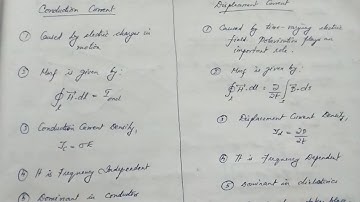 Conduction Current
① Caused by electric charges in
motion
② Mmf is given by:
∮ₗ H̄·dl = I_cond
③ Conduction Current Density,
J_c = σE
④ It is Frequency Independent
⑤ Dominant in conductor
Displacement Current
① Caused by time-varying electric
field. Polarization plays an
important role.
② Mmf is given by:
∮ₗ H̄·dl = ∂/∂t ∫ₛ D̄·ds
③ Displacement Current Density,
J_d = ∂D/∂t
④ It is Frequency Dependent
⑤ Dominant in dielectrics